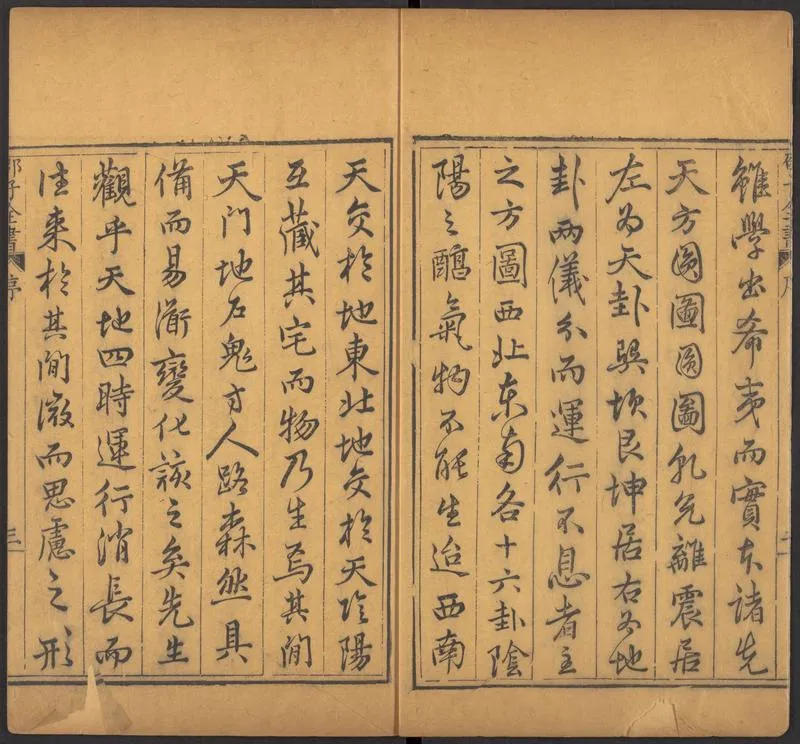 雖學出希夷而實本諸先
天方圓圖圓圖乾兌離震居
左为天卦巽坎艮坤居右为地
卦兩儀分而運行不息者主
之方圖西北东南各十六卦陰
陽之醕氣物不能生迨西南
天交於地東北地交於天陰陽
互藏其宅而物乃生焉其間
天门地户鬼方人路森然具
備而易衍變化該之矣先生
觀乎天地四時運行消長而
往來於其間微而思慮之形
邵子全書 序 三